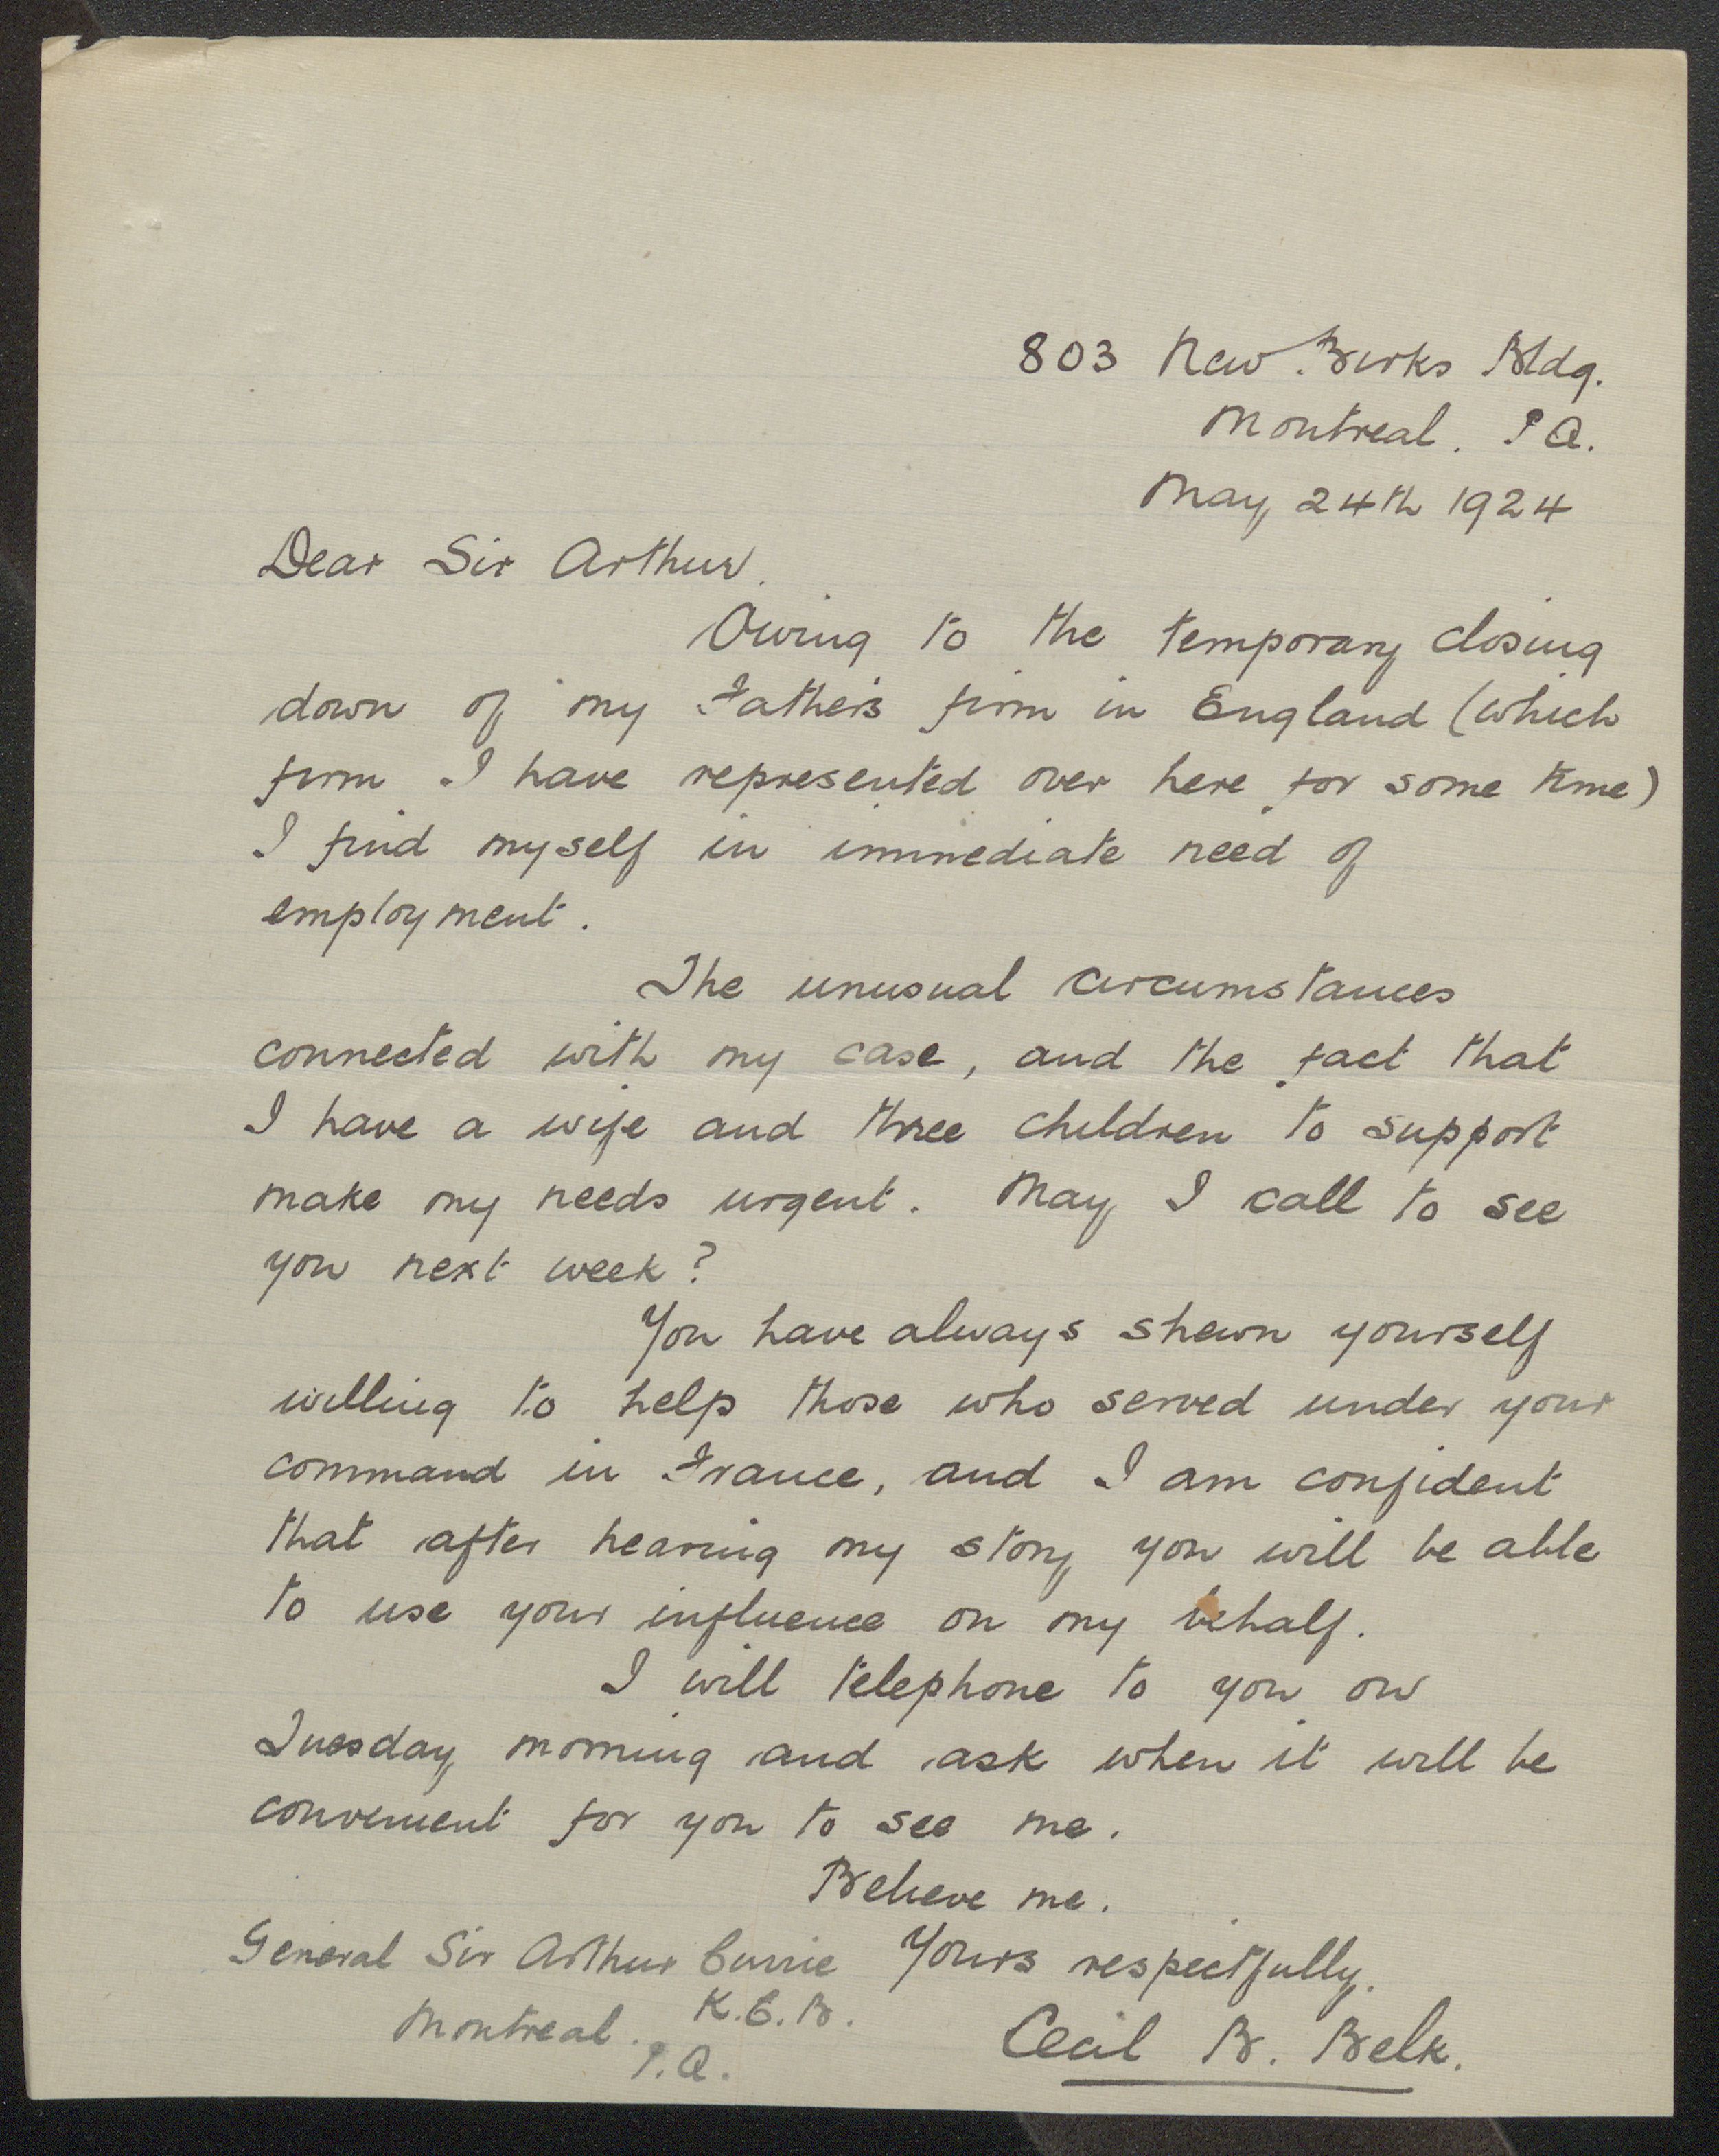 803 New Birks Bldg.
Montreal. P Q.
May 24th 1924
Dear Sir Arthur.
Owing to the temporary closing
down of my Father's firm in England (which
firm I have represented over here for some time)
I find myself in immediate need of
employment.
The unusual circumstances
connected with my case, and the fact that
I have a wife and three children to support
make my needs urgent. May I call to see
you next week?
You have always shewn yourself
willing to help those who served under your
command in France, and I am confident
that after hearing my story you will be able
to use your influence on my behalf.
I will telephone to you on
Tuesday morning and ask when it will be
convenient for you to see me.
Believe me.
Yours respectfully.
Cecil B. Belk.
General Sir Arthur Currie
K.C.B.
Montreal.
P.Q.